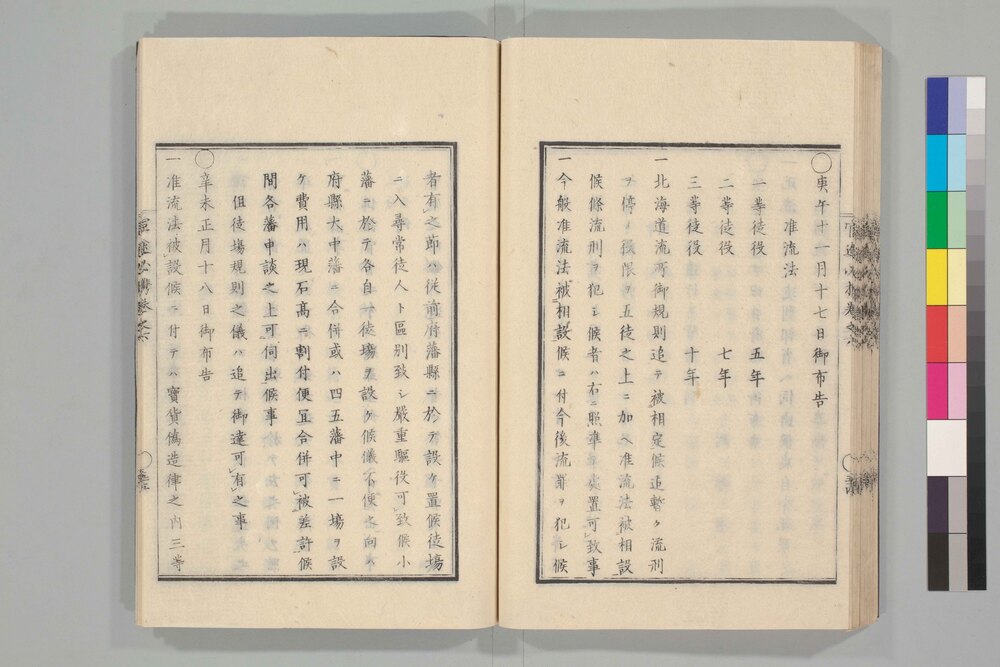 ○庚午十一月十七日御布告
准流法
一等徒役　五年
二等徒役　七年
三等徒役　十年
一北海道流所御規則追テ被相定候迄暫ク流刑
ヲ停メ役限ヲ五徒之上ニ加ヘ准流法被相設
候條流刑ヲ犯シ候者ハ右ニ照準シ處置可致事
一今般准流法被相設候ニ付今後流罪ヲ犯シ候
者有之節ハ從前府藩縣ニ於テ設ケ置候徒場
ニ入尋常徒人ト區別致シ嚴重驅役可致候小
藩ニ於テ各自一徒場ヲ設ケ候儀不便之向ハ
府縣大中藩ニ合併或ハ四五藩中ニ一場ヲ設
ケ費用ハ現石高ニ割付便宜合併可被差許候
間各藩申談之上可伺出候事
但徒場規則之儀ハ追テ御達可有之事
○辛未正月十八日御布告
一准流法被設候ニ付テハ寶貨僞造律之内三等